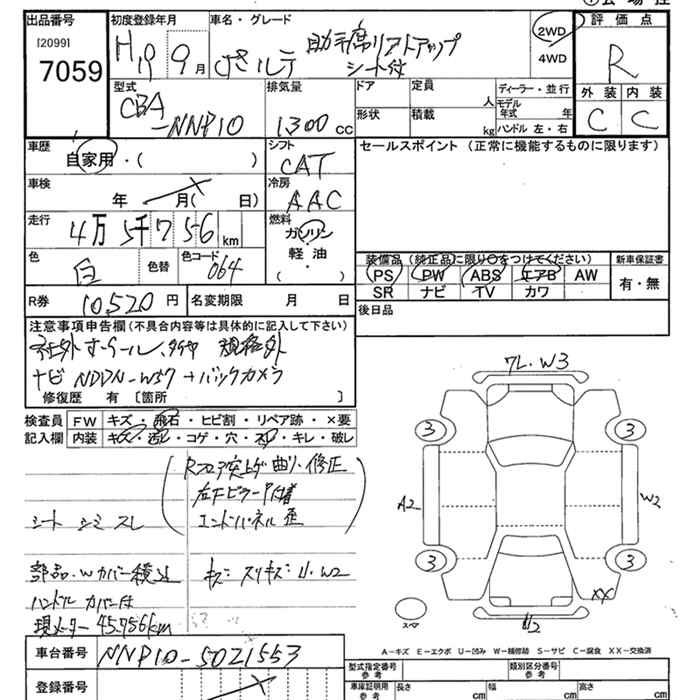 出品番号
[2099]
7059
初度登録年月
H19 9月
車名・グレード
助手席リフトアップ
シート付
2WD
4WD
評価点
R
外装 内装
C C
型式
CBA
-NNP10
排気量
1300 cc
ドア
形状
定員 人
積載 kg
ディーラー・並行
モデル年式 年
ハンドル 左・右
車歴
自家用・( )
シフト
CAT
セールスポイント (正常に機能するものに限ります)
車検
年 月( 日)
冷房
AAC
走行
4万 5千 7 56 km
燃料
ガソリン
軽油
( )
色
白
色替
色コード
064
装備品 (純正品に限り○をつけてください)
PS PW ABS エアB AW
SR ナビ TV カワ
新車保証書
有・無
R券 10,520 円
名変期限 月 日
後日品
注意事項申告欄 (不具合内容等は具体的に記入して下さい)
社外ホイール、タイヤ 規格外
ナビ NDDN-W57 +バックカメラ
修復歴 有 〔箇所 〕
検査員
記入欄
FW キズ・飛石・ヒビ割・リペア跡・×要
内装 キズ・汚レ・コゲ・穴・スレ・キレ・破レ
Rフロア突上ゲ曲り・修正
エンドパネル 歪
シート シミ スレ
部品・Wカバー積込
キズ スリキズ U.W2
ハンドル カバー付
現メーター 45,756km
7L.W3
3 3
A2 W2
3 3
XX
スペア
U2
A-キズ E-エクボ U-凹み W-補修跡 S-サビ C-腐食 XX-交換済
車台番号 NNP10-5021553
登録番号
型式指定番号
参考
類別区分番号
参考
車庫証明用
参考
長さ cm
幅 cm
高さ cm